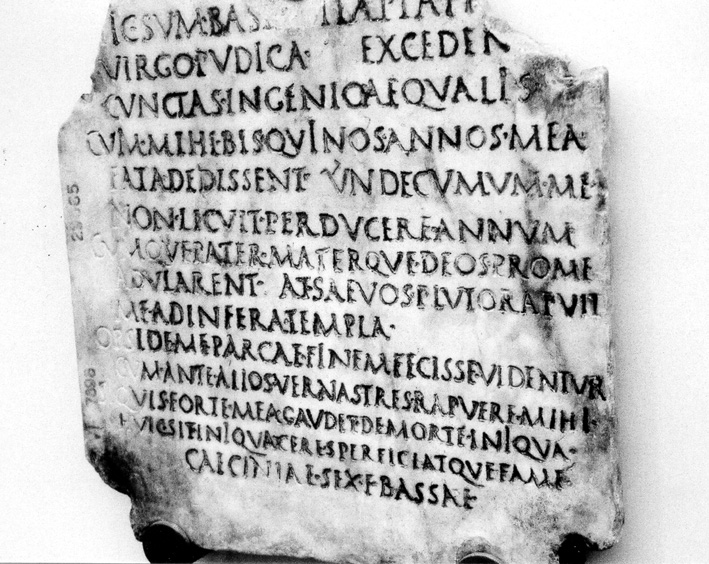 VIRGO PVDICA · EXCEDEN
CVNCTAS · INGENIO AEQVALIS
CVM · MIHI · BIS QVINOS ANNOS · MEA
FATA DEDISSENT · VNDECVMVM · ME
NON · LICVIT · PERDVCERE ANNVM
CVMQVE PATER · MATERQVE · DEOS PRO ME
ADVLARENT · AT SAEVOS PLVTO RAPVIT
ME AD INFERA TEMPLA ·
DE ME PARCAE FINEM FECISSE VIDENTVR
CVM · ANTE ALIOS VERNAS TRES RAPVERE · MIHI ·
QVIS FORTE · MEA GAVDET · DE MORTE · INIQVA ·
HVIC SIT INIQVA CERES PERFICIATQVE FAME
SEX · F BASSAE
7898